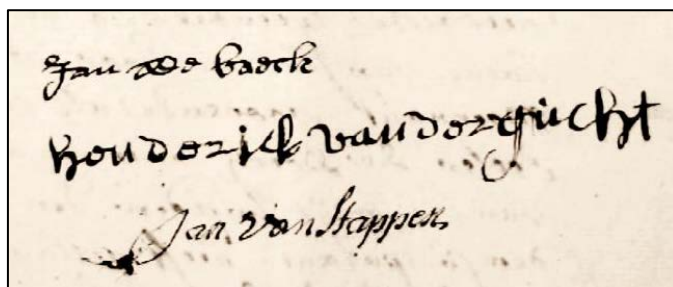 Jan De baeck
henderick vandergucht
Jan van Stappen